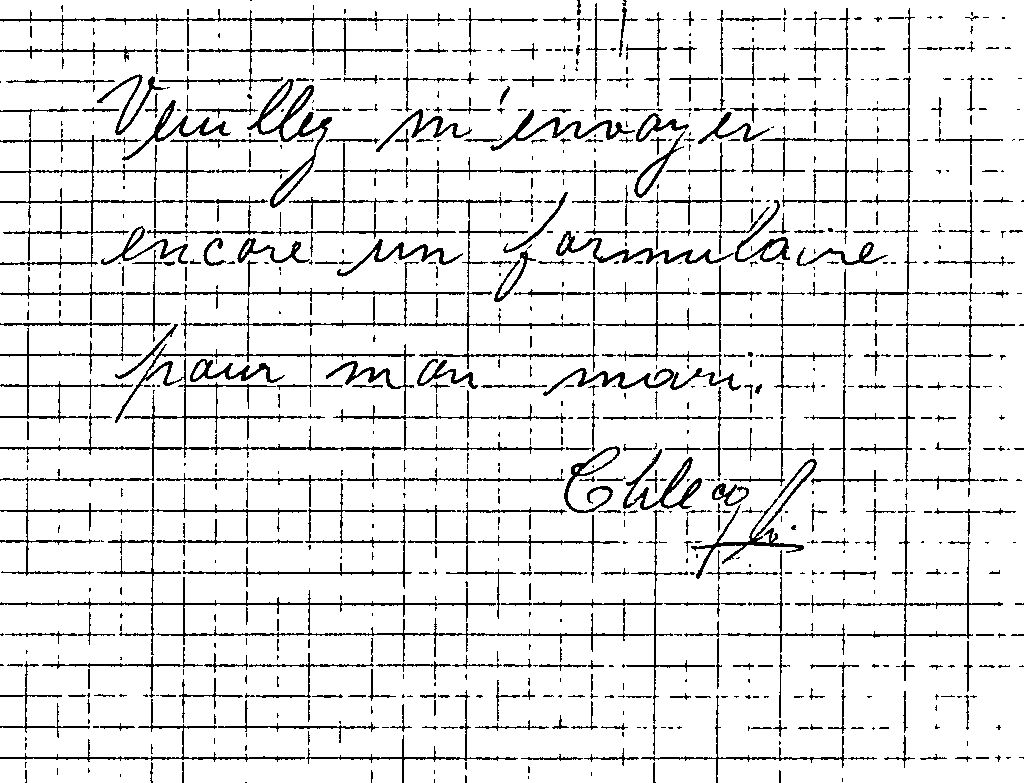 Veuillez m'envoyer
encore un formulaire
pour mon mari.